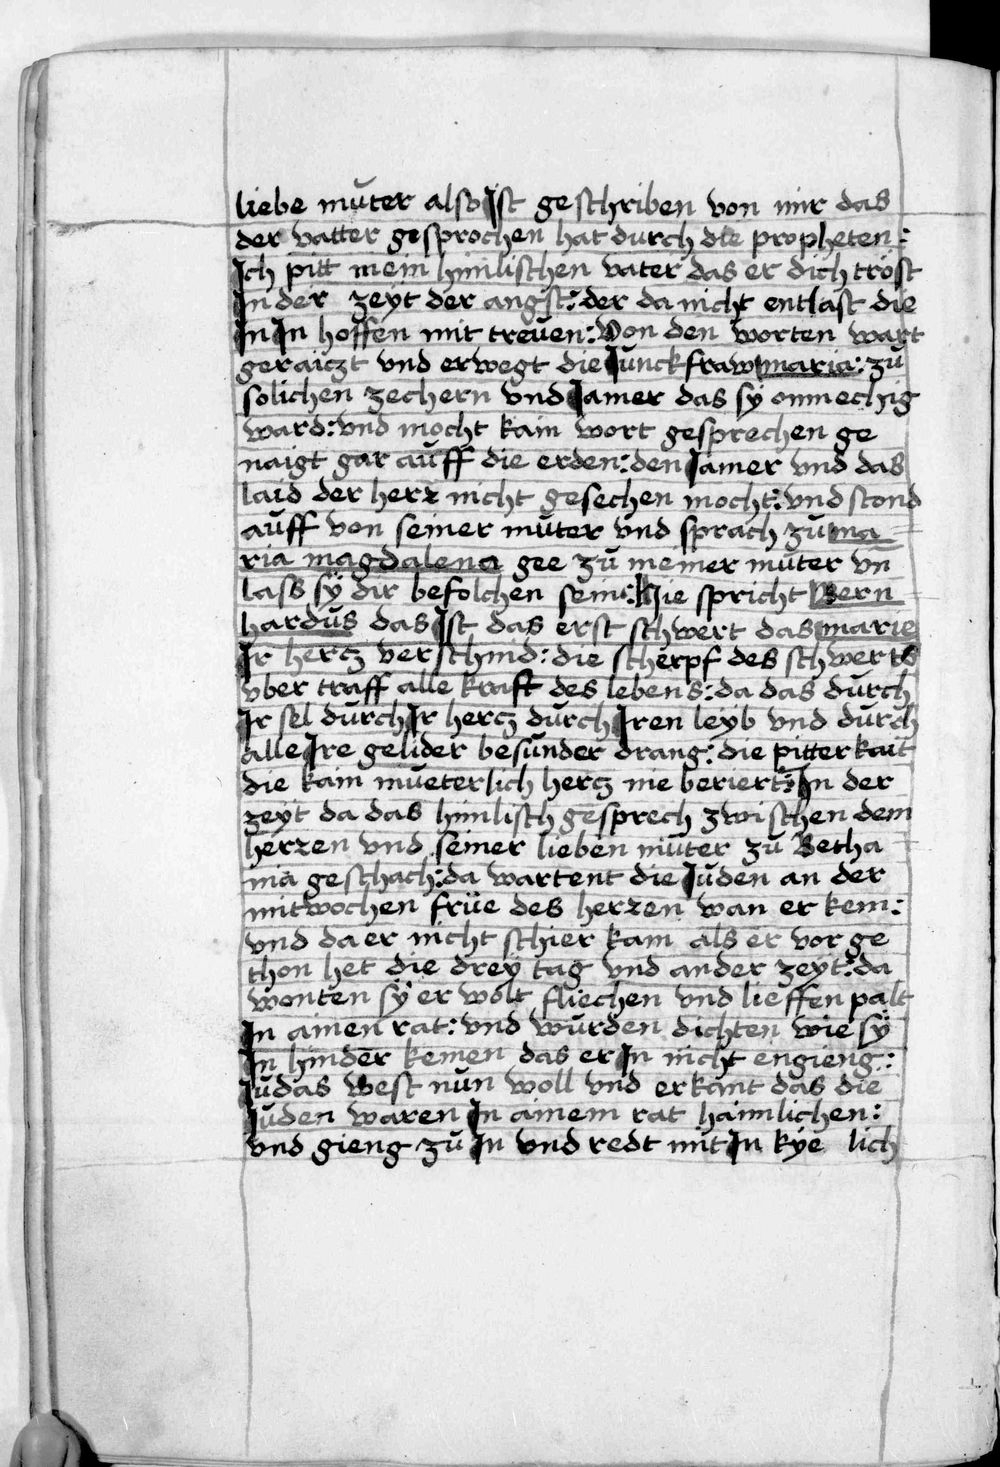 liebe můter also Ist geschriben von mir das
der vatter gesprochen hat durch die propheten:
Ich pitt mein himlischen vater das er dich tröst
In der zeyt der angst: der da nicht entlast die
In In hoffen mit treuen: Von den worten wart
geraiczt vnd erwegt die Junckfraw maria: zů
solichen zechern vnd Jamer das sÿ onmechig
ward: vnd mocht kain wort gesprechen ge
naigt gar auff die erden: den Jamer vnd das
laid der herz nicht gesechen mocht: vnd stond
auff von seiner můter vnd sprach zů ma
ria magdalena gee zů meiner můter vn̄
lass sÿ dir befolchen sein: Hie spricht Bern
hardus das Ist das erst schwert das marie
Ir hercz verschnid: die scherpf des schwerts
vber traff alle kraft des lebens: da das durch
Ir sel durch Ir hercz durch Iren leyb vnd durch
alle Ire gelider besunder drang: die pitterkait
die kain mueterlich hercz nie beriert: In der
zeyt da das himlisch gesprech zwischen dem
herzen vnd seiner lieben můter zů Betha
nia geschach: da wartent die Juden an der
mitwochen früe des herzen wan er kem:
vnd da er nicht schier kam als er vor ge
thon het die dreÿ tag vnd ander zeyt: da
wonten sÿ er wolt fliechen vnd lieffen palt
In ainen rat: vnd wurden dichten wie sÿ
In hinder kemen das er In nicht engieng:
Judas West nun woll vnd erkant das die
Juden waren In ainem rat haimlichen:
vnd gieng zů In vnd redt mit In kÿe lich